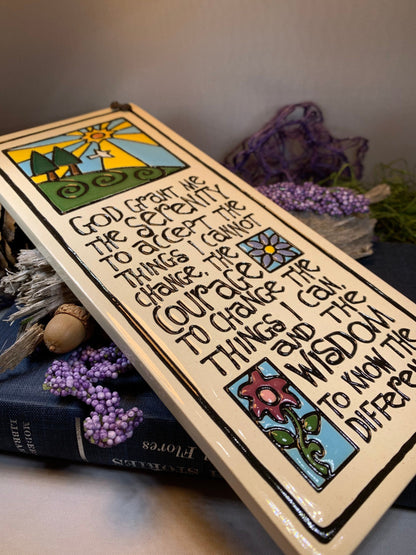 GOD GRANT ME
THE SERENITY
TO ACCEPT THE
THINGS I CANNOT
CHANGE, THE
COURAGE
TO CHANGE THE
THINGS I CAN,
AND THE
WISDOM
TO KNOW THE
DIFFERENCE
Flores
STORIES
MODERN
LIBRARY